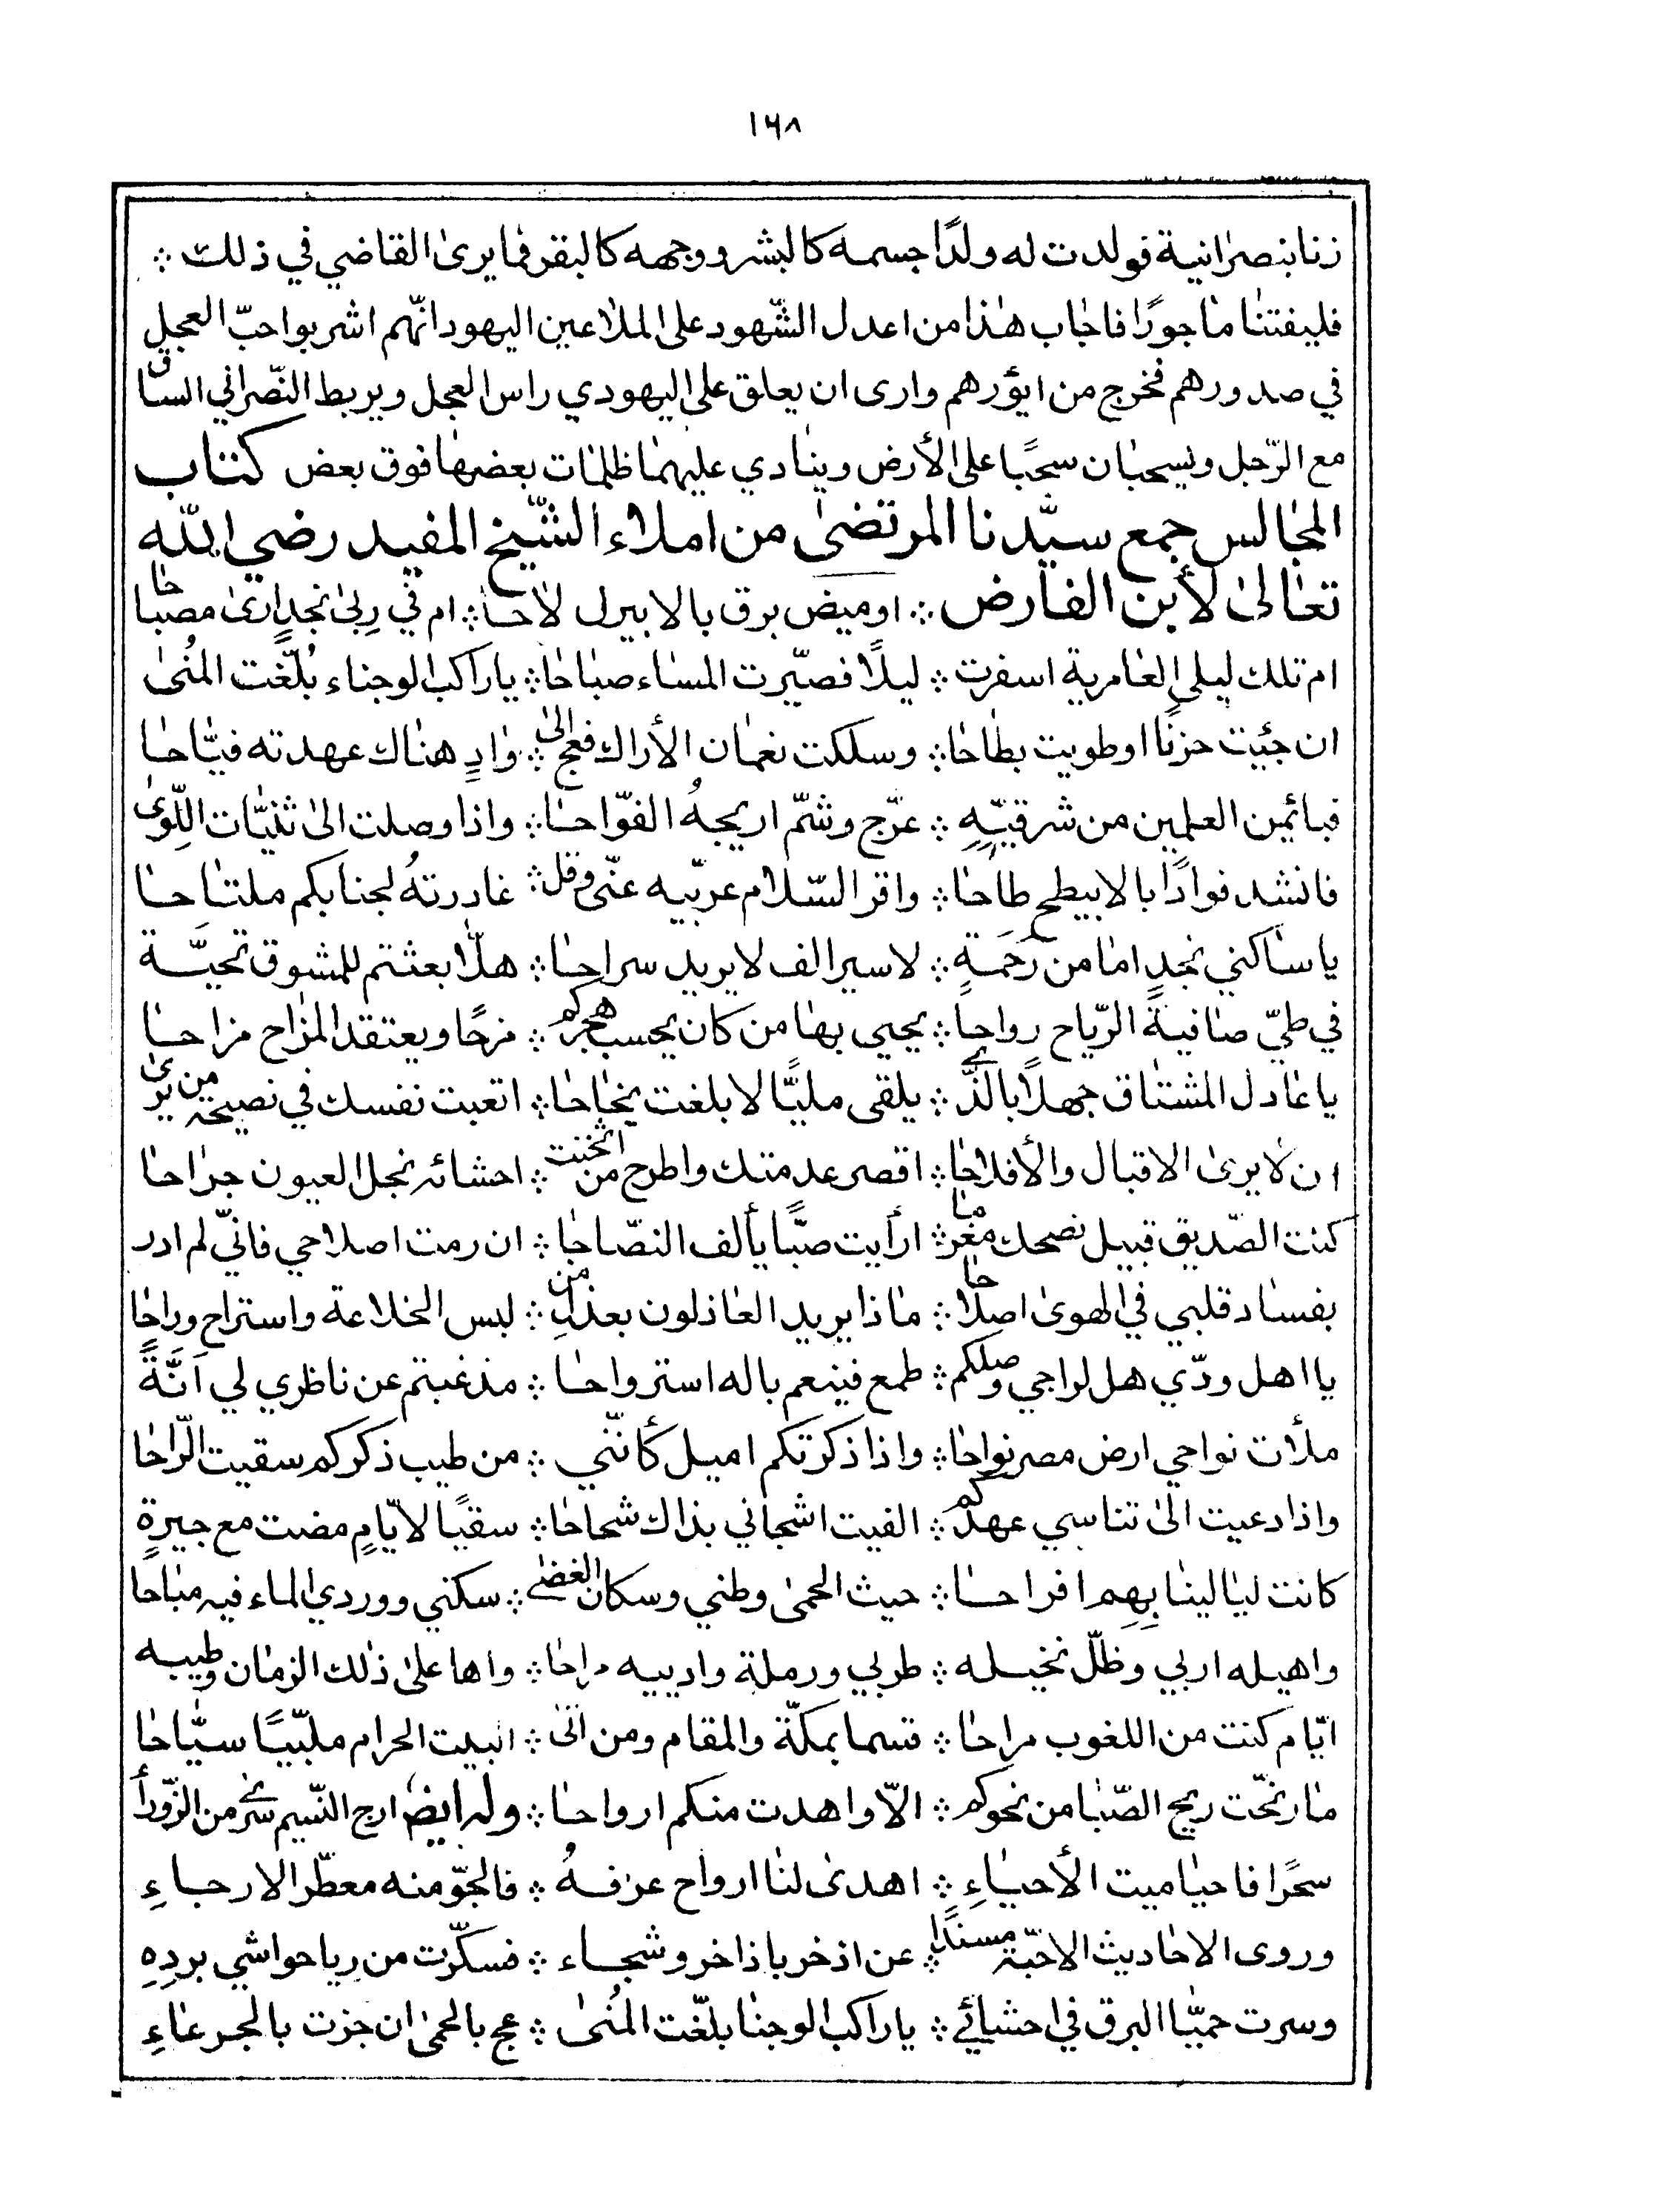 ١٦٨
زنا بنصرانية فولدت له ولدًا جسمه كالبشر ووجهه كالبقر فما يرى القاضي في ذلك ⁘
فليفتنا ماجورًا فاجاب هذا من اعدل الشّهود على الملاعين اليهود انّهم اشربوا حبّ العجل
في صدورهم فخرج من ايؤرهم وارى ان يعلق على اليهودي راس العجل ويربط النّصراني الساق
مع الرّجل ويسحبان سحبًا على الأرض وينادي عليهما ظلمات بعضها فوق بعض كتاب
المجالس جمع سيّدنا المرتضى من املاء الشّيخ المفيد رضي اللّه
تعالى لأبن الفارض ⁘ اوميض برق بالابيرل لاحا ⁘ ام في ربى نجدٍ ارى مصباحا
ام تلك ليلى العامرية اسفرت ⁘ ليلًا فصيّرت المساء صباحا ⁘ يا راكب الوجناء بُلّغت المُنى
ان جئيت حزنًا او طويت بطاحا ⁘ وسلكت نعمان الأراك فعج الى ⁘ وادٍ هناك عهدته فيّاحا
فبائمين العلمين من شرقيّهِ ⁘ عرّج وشمّ اريجهُ الفوّاحا ⁘ واذا وصلت الى ثنيّات اللّوى
فانشد فوادًا بالابيطح طاحا ⁘ واقر السّلام عربّيه عنّى وقل ⁘ غادرتهُ لجنابكم ملتاحا
يا ساكني نجدٍ اما من رَحَمةٍ ⁘ لاسير الف لا يريد سراحا ⁘ هلّا بعثتم للمشوق تحيّة
في طيّ صانيةً الرّياح رواحا ⁘ يحيى بها من كان يحسب هجركم ⁘ مزحًا ويعتقد المزاح مزاحا
يا عاذل المشتاق جهلًا بالّذي ⁘ يلقى مليًّا لا بلغت نجاحا ⁘ اتعبت نفسك في نصيحة من يرى
ان لا يرى الاقبال والأفلاحا ⁘ اقصر عدمتك واطرح من اثخنت ⁘ احشائه نجل العيون جراحا
كنت الصّديق قبيل نصحك مغرما ⁘ ارأيت صبًّا يألف النصّاحا ⁘ ان رمت اصلاحي فانّي لم ادر
بفساد قلبي في الهوى اصلاحا ⁘ ماذا يريد العاذلون بعذل من ⁘ لبس الخلاعة واستراح وراحا
يا اهل ودّي هل لراجي وصلكم ⁘ طمع فينعم باله استرواحا ⁘ مذ غبتم عن ناظري لي اَنَّةً
ملأت نواحي ارض مصر نواحا ⁘ واذا ذكرتكم اميل كأنّني ⁘ من طيب ذكركم سقيت الرّاحا
واذا دعيت الى تناسي عهدكم ⁘ الفيت اشجاني بذاك شحاحا ⁘ سقيًا لايّامٍ مضت مع جيرةٍ
كانت ليالينا بِهِم افراحا ⁘ حيث الحمى وطني وسكان الغضى ⁘ سكني ووردي الماء فيه مباحا
واهيله اربي وظلّ نخيله ⁘ طربي ورملة واديبه مراحا ⁘ واها على ذلك الزمان وطيبه
ايّام كنت من اللغوب مراحا ⁘ قسما بمكّة والمقام ومن اتى ⁘ البيت الحرام ملبّيًا سيّاحا
ما رنحّت ريح الصّبا من نحوكم ⁘ الّا واهدت منكم ارواحا ⁘ وله ايضا ارج النّسيم سرى من الزّورأ
سحرًا فاحيا ميت الأحياءِ ⁘ اهدى لنا ارواح عرفهُ ⁘ فالجوّ منه معطّر الارجاءِ
وروى الاحاديث الاحبّة مسندًا ⁘ عن اذخر باذاخر وشجاء ⁘ فسكّرت من ريا حواشي بردِهِ
وسرت حميّا البرق في احشائي ⁘ يا راكب الوجنا بلّغت المُنى ⁘ عج بالحمى ان جزت بالجرعاءِ